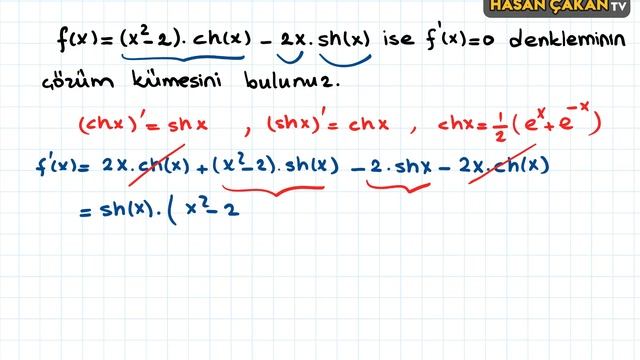 HASAN ÇAKAN TV
f(x) = (x²-2). ch(x) - 2x. sh(x) ise f'(x)=0 denkleminin
çözüm kümesini bulunuz.
(chx)' = shx , (shx)' = chx , chx = 1/2 (eˣ + e⁻ˣ)
f'(x) = 2x.ch(x) + (x²-2).sh(x) - 2.shx - 2x.ch(x)
= sh(x). ( x² - 2